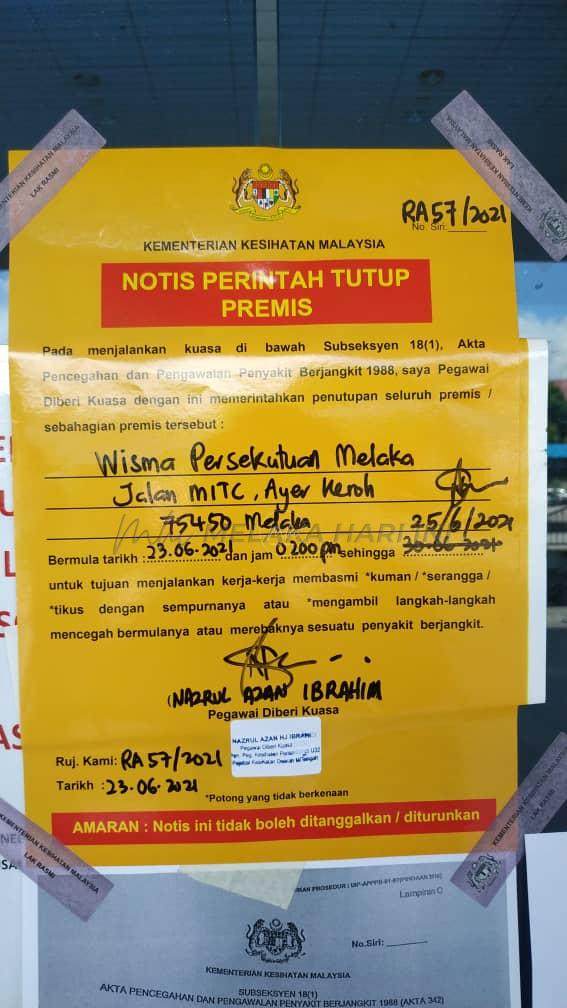 KEMENTERIAN KESIHATAN MALAYSIA
LAK RASMI
KEMENTERIAN KESIHATAN MALAYSIA
LAK RASMI
RA57/2021
No. Siri:
KEMENTERIAN KESIHATAN MALAYSIA
NOTIS PERINTAH TUTUP
PREMIS
Pada menjalankan kuasa di bawah Subseksyen 18(1), Akta
Pencegahan dan Pengawalan Penyakit Berjangkit 1988, saya Pegawai
Diberi Kuasa dengan ini memerintahkan penutupan seluruh premis /
sebahagian premis tersebut :
Wisma Persekutuan Melaka
Jalan MITC, Ayer Keroh
75450 Melaka 25/6/2021
MELAKA HARI INI
Bermula tarikh : 23.06.2021 dan jam 0200 pm sehingga
untuk tujuan menjalankan kerja-kerja membasmi *kuman / *serangga /
*tikus dengan sempurnanya atau *mengambil langkah-langkah
mencegah bermulanya atau merebaknya sesuatu penyakit berjangkit.
NAZRUL AZAN IBRAHIM
Pegawai Diberi Kuasa
NAZRUL AZAN HJ IBRAHIM
Pegawai Diberi Kuasa
U32
Pejabat Kesihatan Daerah
Ruj. Kami: RA57/2021
Tarikh : 23.06.2021
*Potong yang tidak berkenaan
AMARAN : Notis ini tidak boleh ditanggalkan / diturunkan
KEMENTERIAN KESIHATAN MALAYSIA
LAK RASMI
KEMENTERIAN KESIHATAN MALAYSIA
LAK RASMI
Lampiran C
No.Siri:
KEMENTERIAN KESIHATAN MALAYSIA
SUBSEKSYEN 18(1)
AKTA PENCEGAHAN DAN PENGAWALAN PENYAKIT BERJANGKIT 1988 (AKTA 342)